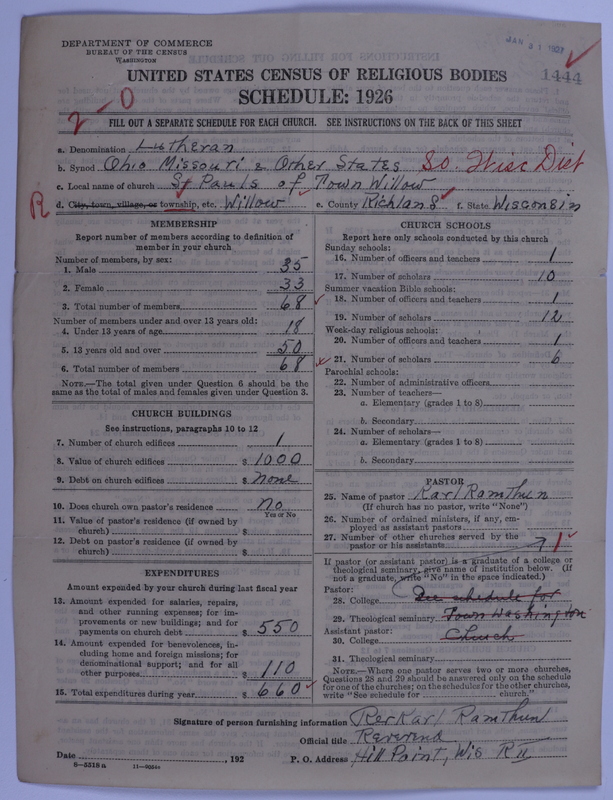 DEPARTMENT OF COMMERCE
BUREAU OF THE CENSUS
WASHINGTON
JAN 31 1927
1444
UNITED STATES CENSUS OF RELIGIOUS BODIES
SCHEDULE: 1926
2-0
FILL OUT A SEPARATE SCHEDULE FOR EACH CHURCH. SEE INSTRUCTIONS ON THE BACK OF THIS SHEET
a. Denomination Lutheran
b. Synod Ohio Missouri & Other States So. Wisc Dist
c. Local name of church St Pauls of Town Willow
R d. City, town, village, or township, etc. Willow e. County Richland f. State Wisconsin
MEMBERSHIP
Report number of members according to definition of member in your church
Number of members, by sex:
1. Male 35
2. Female 33
3. Total number of members 68
Number of members under and over 13 years old:
4. Under 13 years of age 18
5. 13 years old and over 50
6. Total number of members 68
NOTE.—The total given under Question 6 should be the
same as the total of males and females given under Question 3.
CHURCH BUILDINGS
See instructions, paragraphs 10 to 12
7. Number of church edifices 1
8. Value of church edifices $ 1000
9. Debt on church edifices $ None
10. Does church own pastor's residence No
Yes or No
11. Value of pastor's residence (if owned by
church) $
12. Debt on pastor's residence (if owned by
church) $
EXPENDITURES
Amount expended by your church during last fiscal year
13. Amount expended for salaries, repairs,
and other running expenses; for im-
provements or new buildings; and for
payments on church debt $ 550
14. Amount expended for benevolences, in-
cluding home and foreign missions; for
denominational support; and for all
other purposes $ 110
15. Total expenditures during year $ 660
CHURCH SCHOOLS
Report here only schools conducted by this church
Sunday schools:
16. Number of officers and teachers 1
17. Number of scholars 10
Summer vacation Bible schools:
18. Number of officers and teachers 1
19. Number of scholars 12
Week-day religious schools:
20. Number of officers and teachers 1
21. Number of scholars 6
Parochial schools:
22. Number of administrative officers
23. Number of teachers—
a. Elementary (grades 1 to 8)
b. Secondary
24. Number of scholars—
a. Elementary (grades 1 to 8)
b. Secondary
PASTOR
25. Name of pastor Karl Ramthun
(If church has no pastor, write "None")
26. Number of ordained ministers, if any, em-
ployed as assistant pastors
27. Number of other churches served by the
pastor or his assistants 1
If pastor (or assistant pastor) is a graduate of a college or
theological seminary, give name of institution below. (If
not a graduate, write "No" in the space indicated.)
Pastor:
28. College See schedule for
29. Theological seminary Town Washington
Assistant pastor:
30. College Church
31. Theological seminary
NOTE.—Where one pastor serves two or more churches,
Questions 28 and 29 should be answered only on the schedule
for one of the churches; on the schedules for the other churches,
write "See schedule for church."
Signature of person furnishing information Rev Karl Ramthun
Official title Reverend
Date , 192 P. O. Address Hill Point, Wis
8—5318a 11—9034c